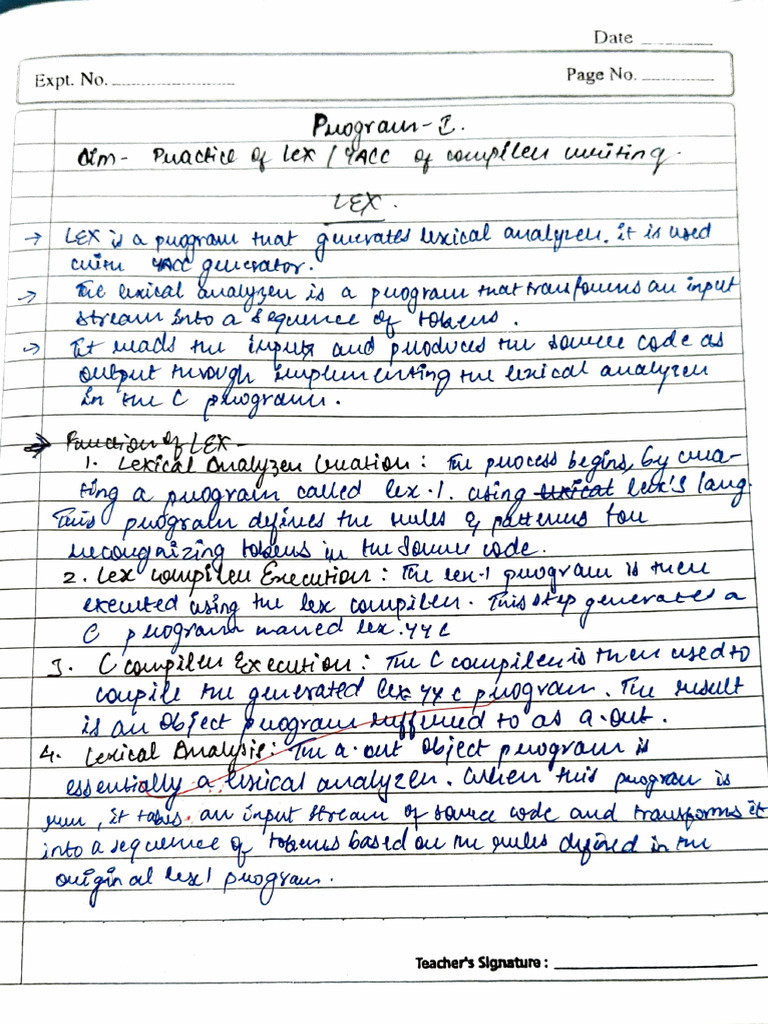 Date
Expt. No.
Page No.
Program-I.
Aim- Practice of Lex / YACC of compiler writing.
LEX.
→ LEX is a program that generates lexical analyzer. it is used
with YACC generator.
→ The lexical analyzer is a program that transforms an input
stream into a sequence of tokens.
→ It reads the input and produces the source code as
output through implementing the lexical analyzer
in the C program.
→ Function of LEX-
1. Lexical Analyzer Creation : The process begins, by crea-
ting a program called lex.l. using lexical lex's lang.
This program defines the rules & patterns for
recongnizing tokens in the Source code.
2. Lex compiler Execution : The lex-l program is then
executed using the lex compiler. This step generates a
C program named lex.yyc
3. C compiler Execution : The C compiler is then used to
compile the generated lex yy c program. The result
is an object program reffered to as a.out.
4. Lexical Analysis: The a.out object program is
essentially a lexical analyzer. When this program is
run, it takes an input stream of source code and transforms it
into a sequence of tokens based on the rules defined in the
original lex l program.
Teacher's Signature :